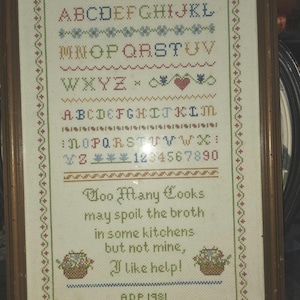 ABCDEFGHIJKL
MNOPQRSTUV
WXYZ
ABCDEFGHIJKLM
NOPQRSTUVWX
YZ 1234567890
Too Many Cooks
may spoil the broth
in some kitchens
but not mine,
I like help!
ADP 1981